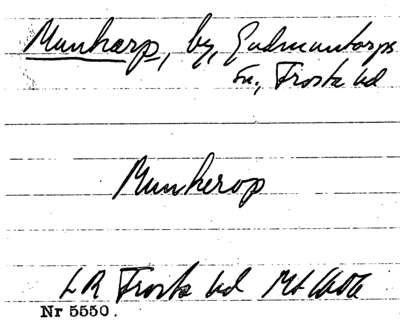 Munkarp, by, Gudmuntorps
sn., Frosta hd
Munkerop
LR Frosta hd Ms
Nr 5550.